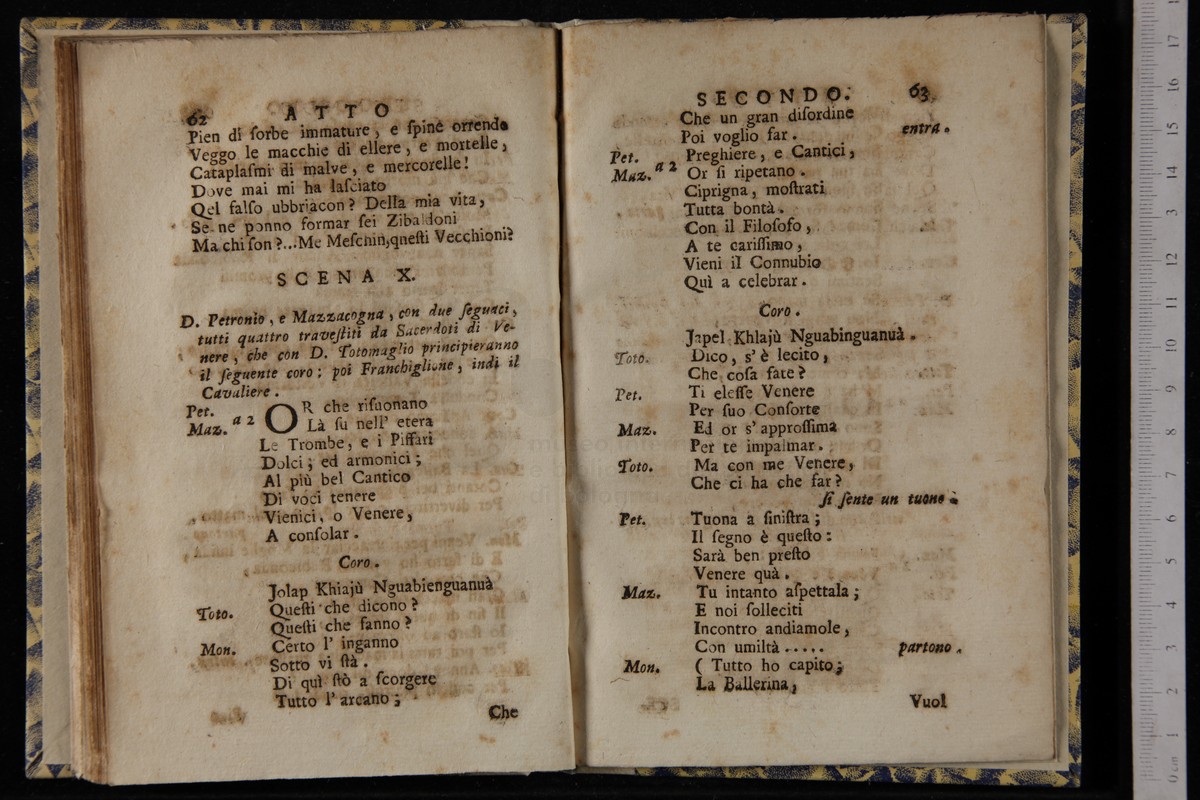 62 ATTO
Pien di ſorbe immature, e ſpine orrende
Veggo le macchie di ellere, e mortelle,
Cataplaſmi di malve, e mercorelle!
Dove mai mi ha laſciato
Qel falſo ubbriacon? Della mia vita,
Se ne ponno formar ſei Zibaldoni
Ma chi ſon?...Me Meſchin,qneſti Vecchioni?
SCENA X.
D. Petronio, e Mazzacogna, con due ſeguaci,
tutti quattro traveſtiti da Sacerdoti di Ve-
nere, che con D. Totomaglio principieranno
il ſeguente coro; poi Franchiglione, indi il
Cavaliere.
Pet. Maz. a 2 OR che riſuonano
Là ſu nell' etera
Le Trombe, e i Piffari
Dolci; ed armonici;
Al più bel Cantico
Di voci tenere
Vienici, o Venere,
A conſolar.
Coro.
Jolap Khiajù Nguabienguanuà
Toto. Queſti che dicono?
Queſti che fanno?
Mon. Certo l' inganno
Sotto vi ſtà.
Di quì ſtò a ſcorgere
Tutto l' arcano;
Che
SECONDO. 63
Che un gran diſordine
Poi voglio far. entra.
Pet. Maz. a 2 Preghiere, e Cantici,
Or ſi ripetano.
Ciprigna, moſtrati
Tutta bontà.
Con il Filoſofo,
A te cariſſimo,
Vieni il Connubio
Quì a celebrar.
Coro.
Japel Khlajù Nguabinguanuà.
Toto. Dico, s' è lecito,
Che coſa fate?
Pet. Ti eleſſe Venere
Per ſuo Conſorte
Maz. Ed or s' approſſima
Per te impalmar.
Toto. Ma con me Venere,
Che ci ha che far?
ſi ſente un tuono.
Pet. Tuona a ſiniſtra;
Il ſegno è queſto:
Sarà ben preſto
Venere quà.
Maz. Tu intanto aſpettala;
E noi ſolleciti
Incontro andiamole,
Con umiltà ..... partono.
Mon. ( Tutto ho capito;
La Ballerina,
Vuol